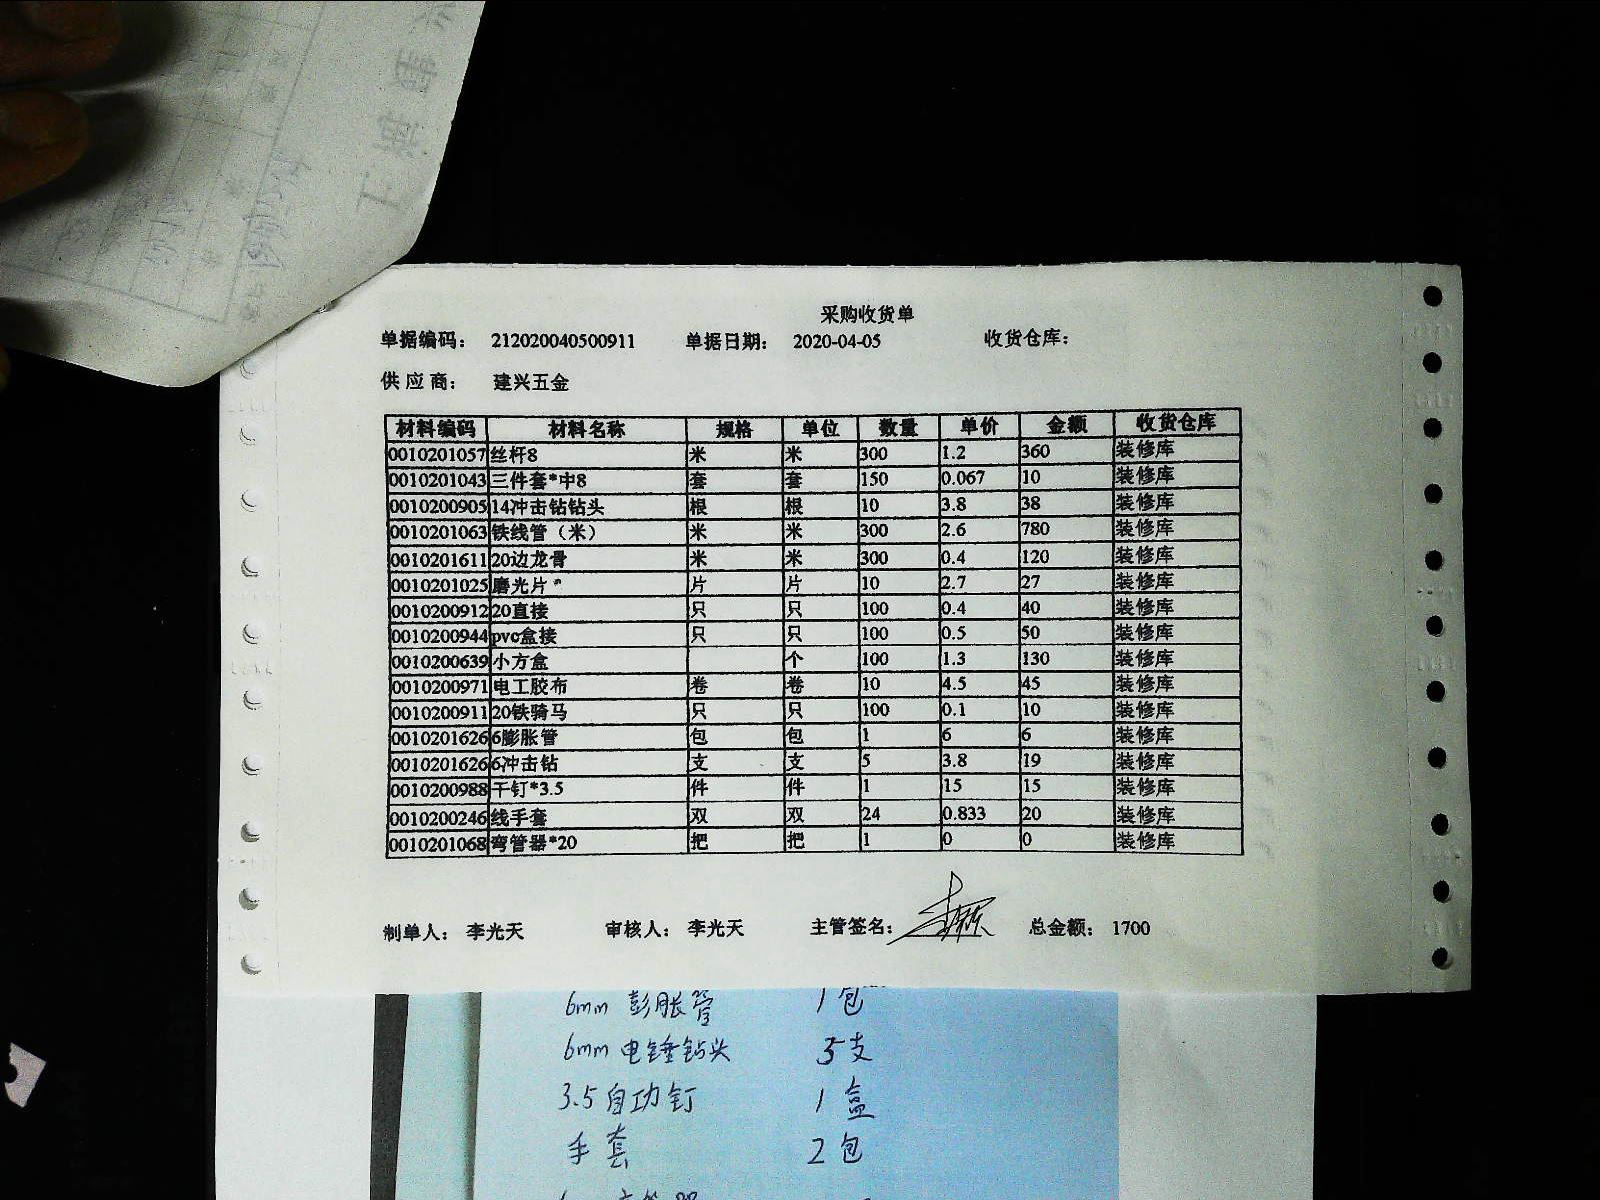 采购收货单
单据编码： 212020040500911 单据日期： 2020-04-05 收货仓库：
供应商： 建兴五金
材料编码 材料名称 规格 单位 数量 单价 金额 收货仓库
0010201057 丝杆8 米 米 300 1.2 360 装修库
0010201043 三件套*中8 套 套 150 0.067 10 装修库
0010200905 14冲击钻钻头 根 根 10 3.8 38 装修库
0010201063 铁线管（米） 米 米 300 2.6 780 装修库
0010201611 20边龙骨 米 米 300 0.4 120 装修库
0010201025 磨光片* 片 片 10 2.7 27 装修库
0010200912 20直接 只 只 100 0.4 40 装修库
0010200944 pvc盒接 只 只 100 0.5 50 装修库
0010200639 小方盒 个 100 1.3 130 装修库
0010200971 电工胶布 卷 卷 10 4.5 45 装修库
0010200911 20铁骑马 只 只 100 0.1 10 装修库
0010201626 6膨胀管 包 包 1 6 6 装修库
0010201626 6冲击钻 支 支 5 3.8 19 装修库
0010200988 干钉*3.5 件 件 1 15 15 装修库
0010200246 线手套 双 双 24 0.833 20 装修库
0010201068 弯管器*20 把 把 1 0 0 装修库
制单人： 李光天 审核人： 李光天 主管签名： 总金额： 1700
6mm 彭胀管 1包
6mm 电锤钻头 5支
3.5自功钉 1盒
手套 2包